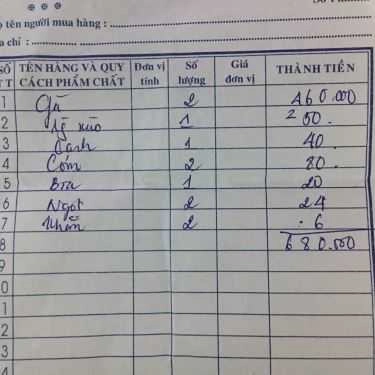 tên người mua hàng :
chỉ :
SỐ TT TÊN HÀNG VÀ QUY CÁCH PHẨM CHẤT Đơn vị tính Số lượng Giá đơn vị THÀNH TIỀN
1 Gà 2 460.000
2 xào 1 250.
3 Canh 1 40.
4 Cơm 2 80.
5 Bia 1 20
6 Ngọt 2 24
7 Khăn 2 6
8 680.000
9
0
1
2
3
4